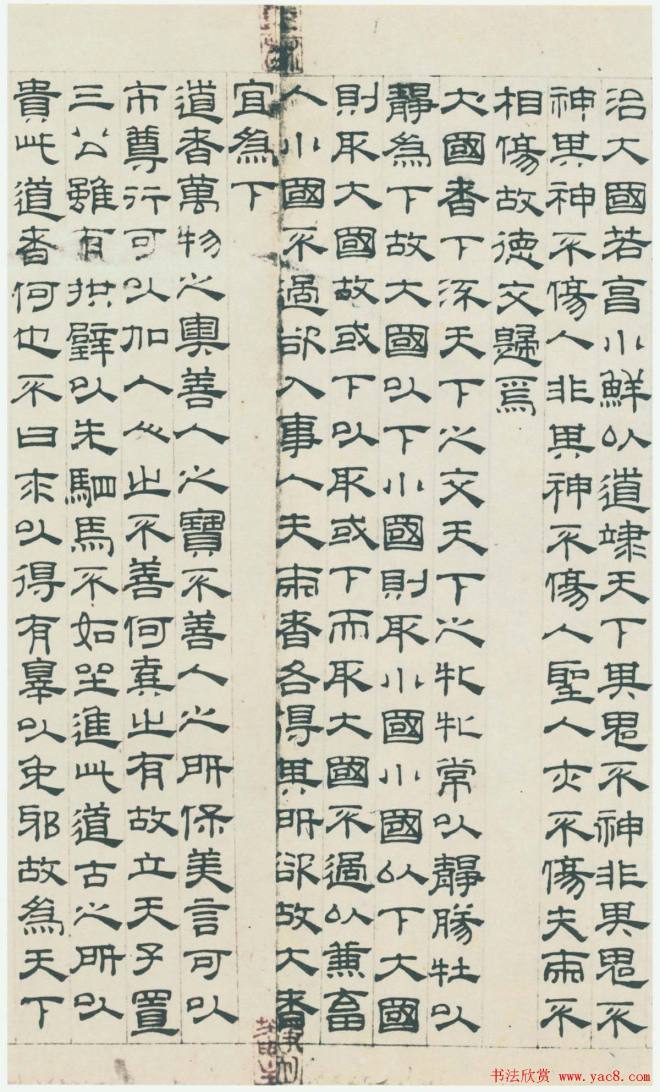 治大國若亨小鮮以道䇐天下其鬼不神非其鬼不
神其神不傷人非其神不傷人聖人亦不傷夫兩不
相傷故德交歸焉
大國者下流天下之交天下之牝牝常以靜勝牡以
靜爲下故大國以下小國則取小國小國以下大國
則取大國故或下以取或下而取大國不過以兼畜
人小國不過欲入事人夫兩者各得其所欲故大者
宜爲下
道者萬物之奧善人之寶不善人之所保美言可以
市尊行可以加人人之不善何棄之有故立天子置
三公雖有拱璧以先駟馬不如坐進此道古之所以
貴此道者何也不曰求以得有辠以免邪故爲天下
书法欣赏 www.yac8.com